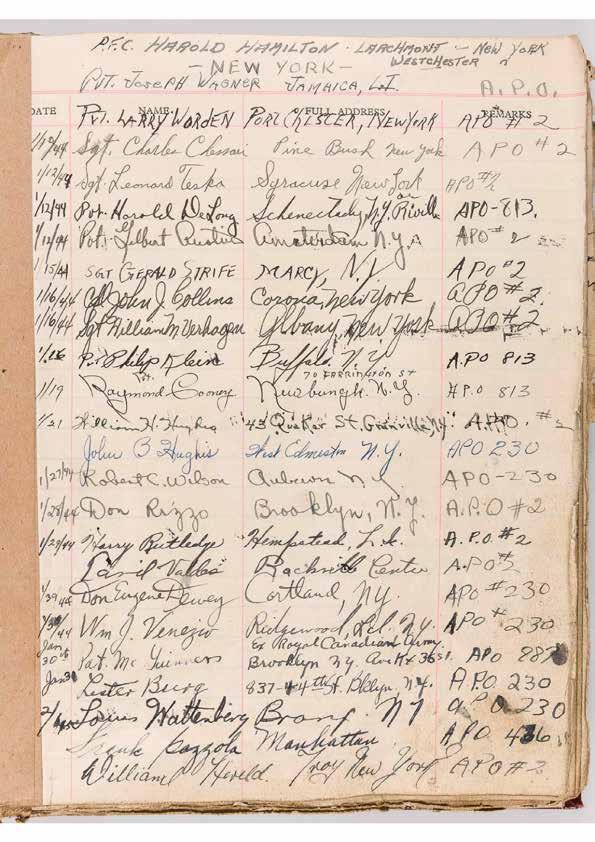 P.F.C. HAROLD HAMILTON · LARCHMONT - NEW YORK
WESTCHESTER
- NEW YORK -
PVT. JOSEPH WAGNER JAMAICA, L.I. A.P.O.
DATE NAME FULL ADDRESS REMARKS
Pvt. LARRY WORDEN PORT CHESTER, NEW YORK APO # 2
1/12/44 Sgt. Charles Pine Bush New York APO #2
1/12/44 Sgt. Leonard Teska Syracuse New York APO #2
1/12/44 Pvt. Harold DeLong Schenectady, N.Y. or APO-813.
1/12/44 Pvt. Gilbert Amsterdam N.Y. APO # 2
1/15/44 SGT GERALD STRIFE MARCY, N.Y. APO #2
1/16/44 Cpl John J. Collins Corona, New York APO #2.
1/16/44 Sgt William M Verhagen Albany, New York APO #2
1/16 Pvt Philip Klein Buffalo, N.Y. APO 813
70 FARRINGTON ST
1/19 Pvt. Raymond Cooney Newburgh, N.Y. APO 813
1/21 William H. Hughes 43 Quaker St, Granville, NY A.P.O. #2
John B Hughes West Edmeston N.Y. APO 230
1/27/44 Robert C. Wilson Auburn N.Y. APO-230
1/28/44 Don Rizzo Brooklyn, N.Y. A.P.O. #2
1/29/44 Harry Rutledge Hempstead L.I. A.P.O. #2
Valdes Rockville Center A.P.O #2
1/29/44 Don Eugene Dewey Cortland, N.Y. APO #230
1/30/44 Wm J. Venezio Ridgewood, L.I. N.Y. APO # 230
Ex Royal Canadian Army
Jan 30 Pat. Mc Guinness Brooklyn N.Y. Ave K + 36 St. APO 887
Jan 30 Lester Burg 837-44th St. Bklyn, N.Y. A.P.O. 230
2/ Louis Wattenberg Bronx N.Y. A.P.O 230
Frank Cozzola Manhattan APO 436
William Herold. Troy New York APO #2